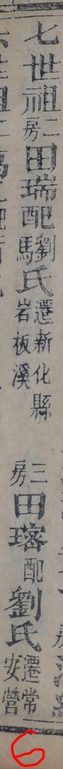 七世祖二房田瑞配劉氏遷新化縣馬岩板溪
三房田璿配劉氏遷常安營